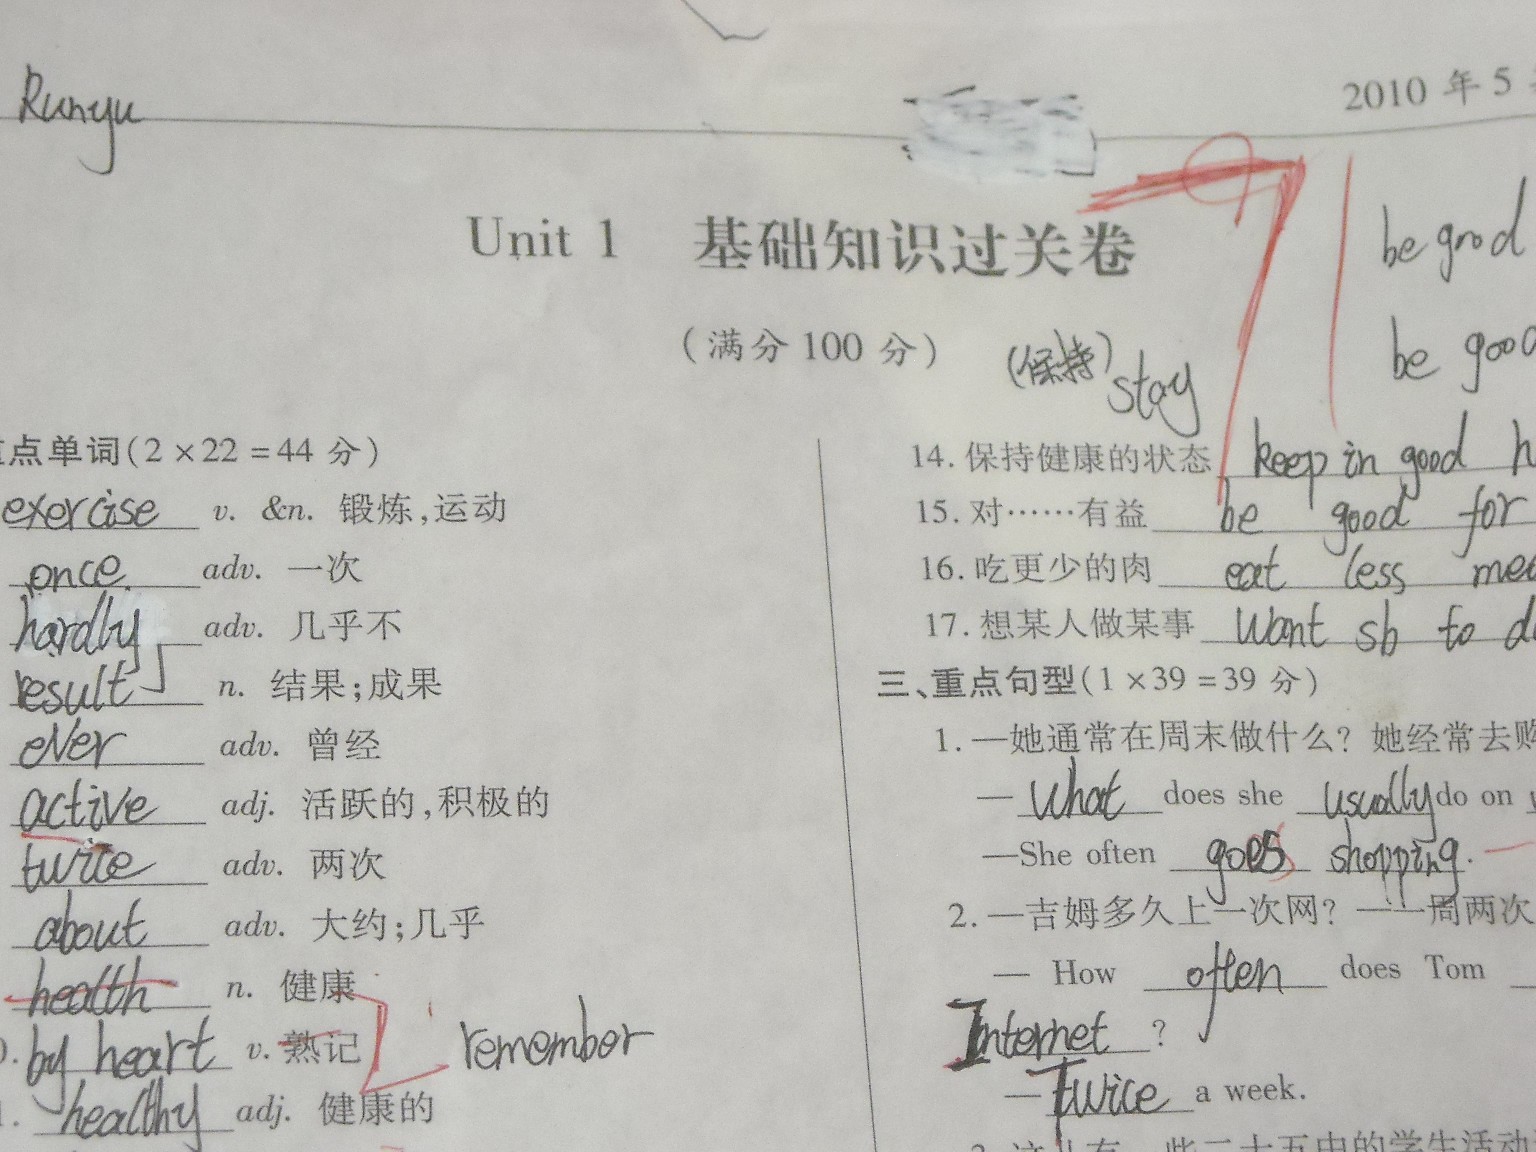 Runyu
2010 年 5
Unit 1 基础知识过关卷
(满分 100 分)
(保持) stay
be good
be good
点单词(2×22=44 分)
exercise v. &n. 锻炼,运动
once adv. 一次
hardly adv. 几乎不
result n. 结果;成果
ever adv. 曾经
active adj. 活跃的,积极的
twice adv. 两次
about adv. 大约;几乎
health n. 健康
by heart v. 熟记 remember
healthy adj. 健康的
14. 保持健康的状态 keep in good h
15. 对……有益 be good for
16. 吃更少的肉 eat less mea
17. 想某人做某事 Want sb to do
三、重点句型(1×39=39 分)
1. —她通常在周末做什么? 她经常去购
— What does she usually do on
—She often goes shopping.
2. —吉姆多久上一次网? —一周两次
— How often does Tom
Internet ?
— Twice a week.